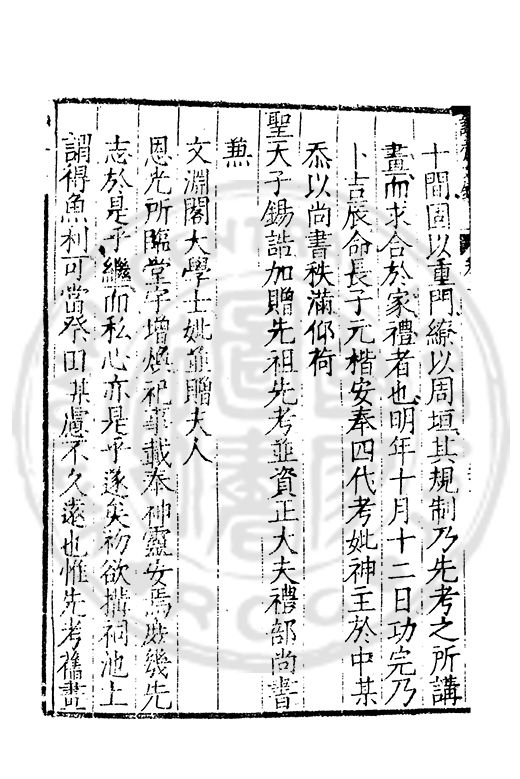 十間固以重門繚以周垣其規制乃先考之所講
畫而求合於家禮者也明年十月十二日功完乃
卜吉辰命長子元楷安奉四代考妣神主於中某
忝以尚書秩滿仰荷
聖天子錫誥加贈先祖先考並資正大夫禮部尚書
兼
文淵閣大學士妣並贈夫人
恩光所臨堂宇增煥祀事載奉神靈安焉庶幾先
志於是乎繼而私心亦是乎遂矣初欲搆祠池上
謂得魚利可當祭田其慮不久遠也惟先考舊畫